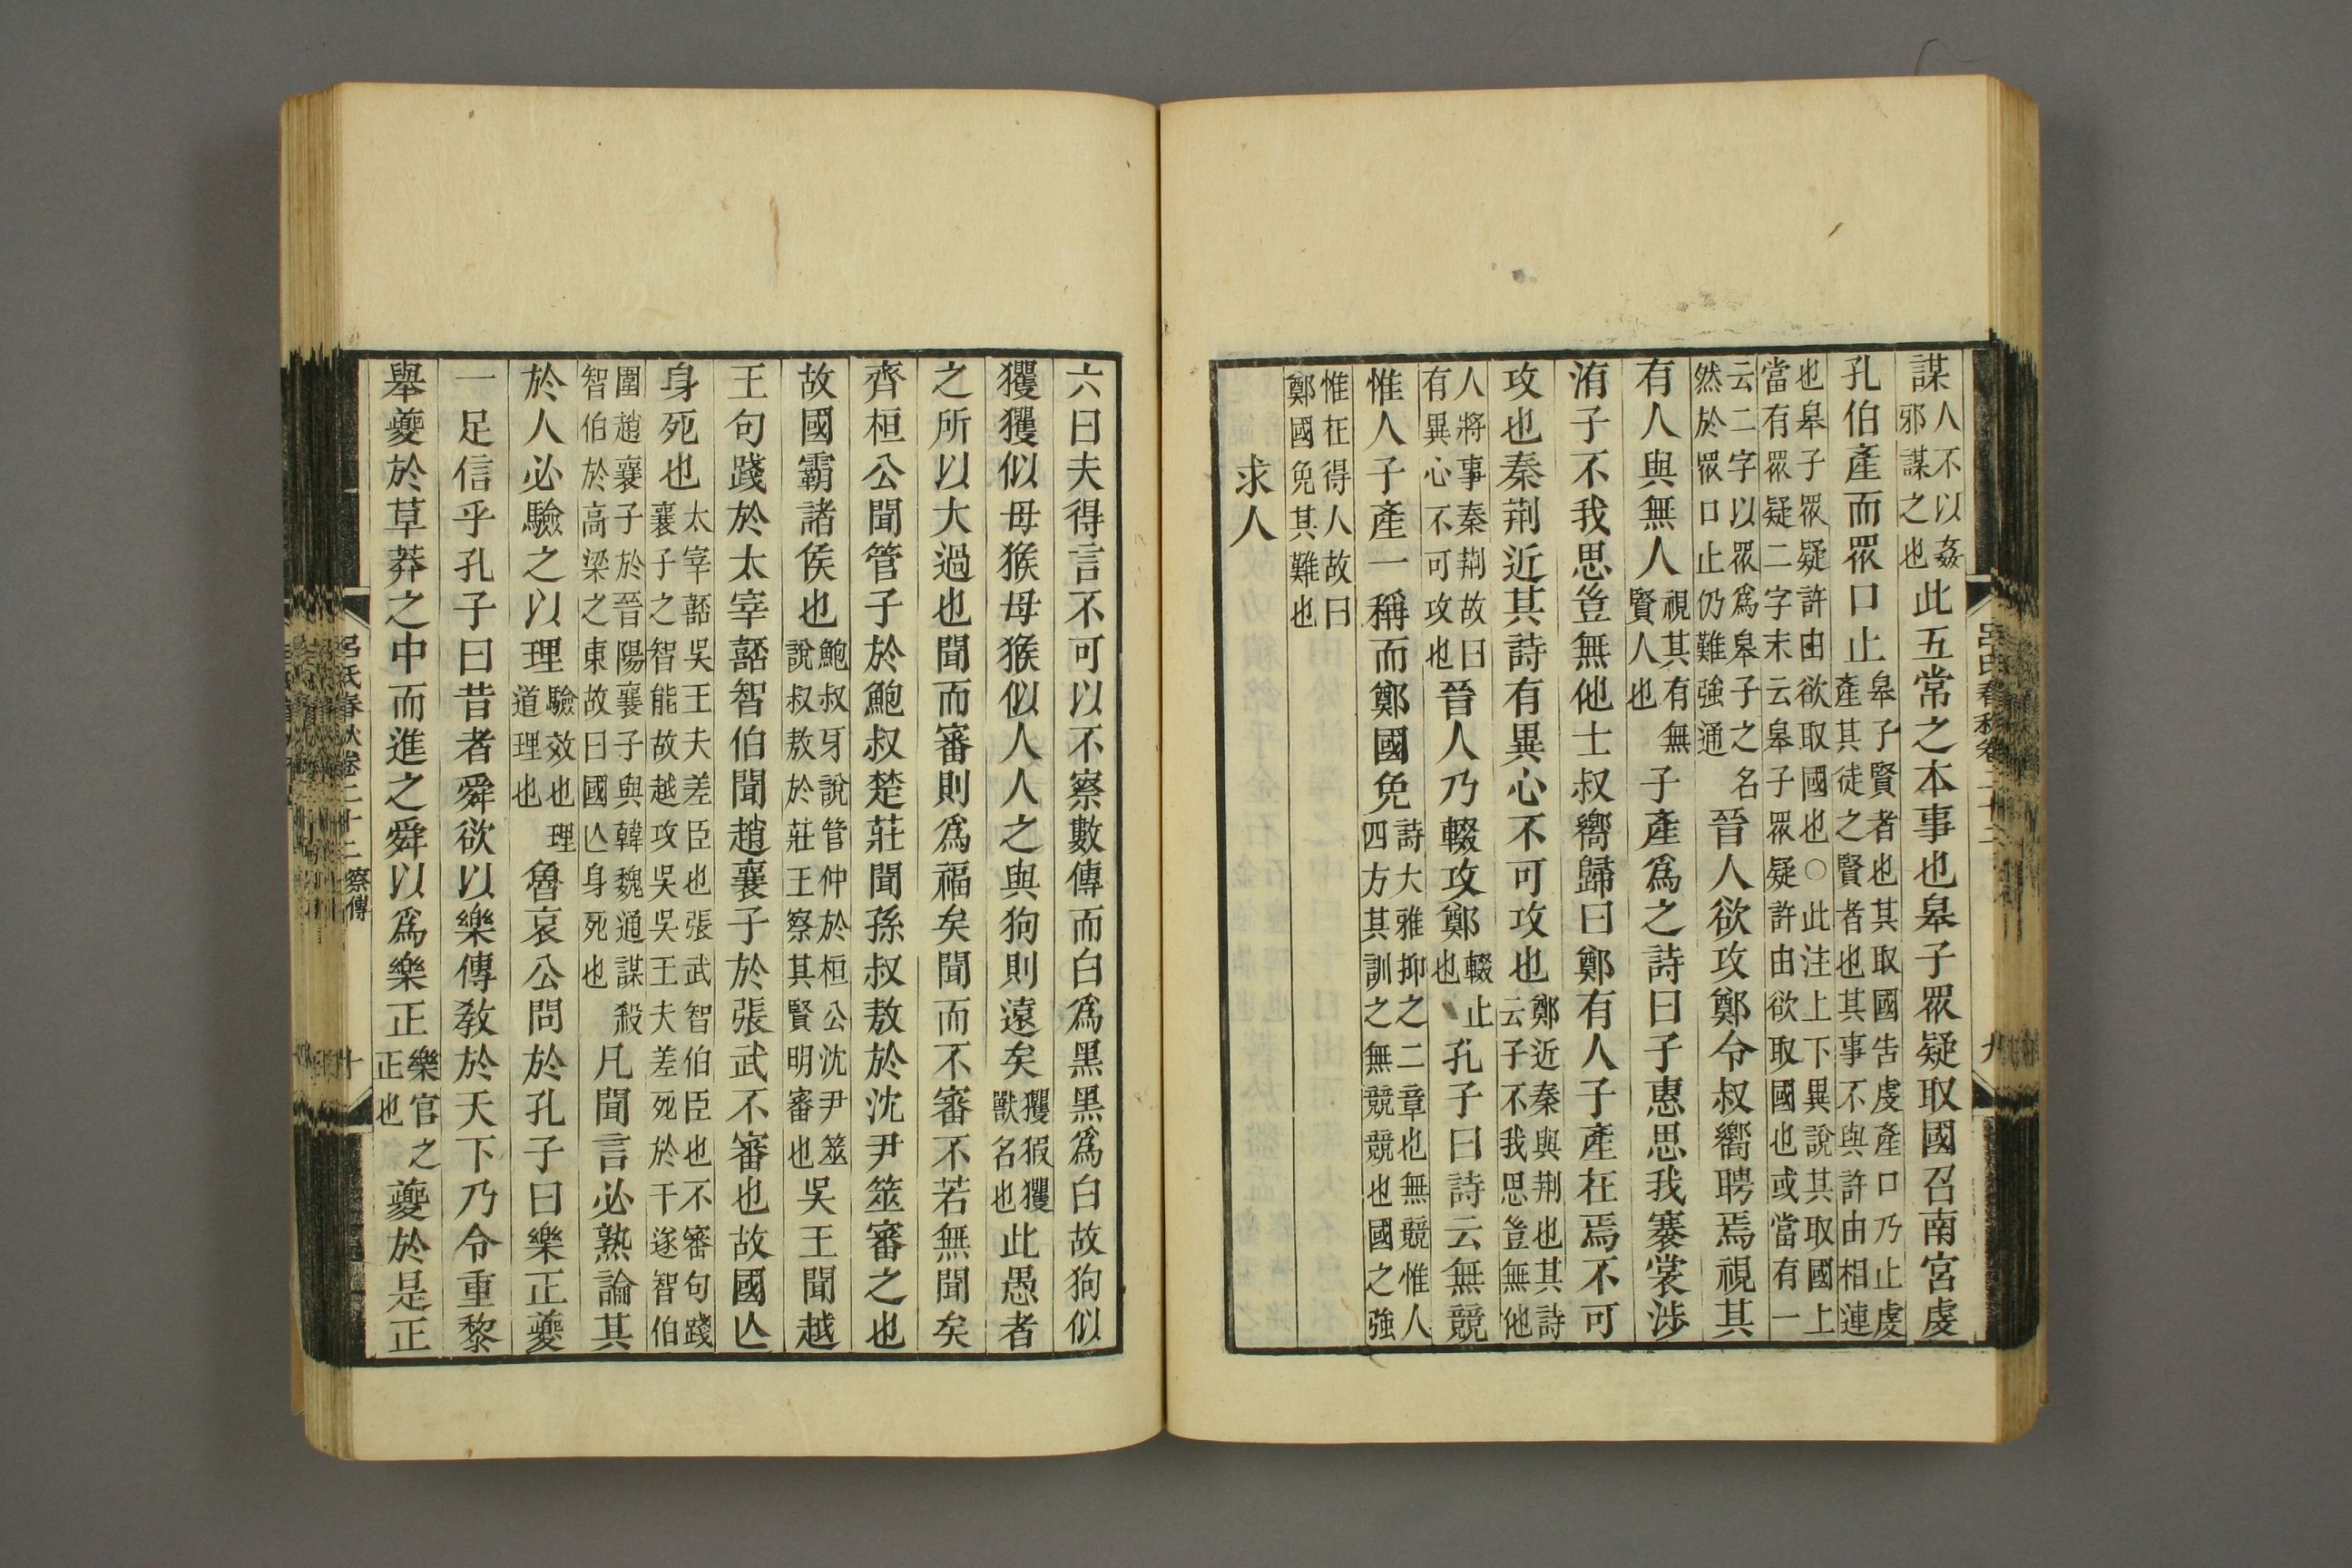 謀人不以姦邪謀之也此五常之本事也皋子眾疑取國召南宮虔
孔伯產而眾口止皋子賢者也其取國告虔產口乃止虔產其徒之賢者也其事不與許由相連
也皋子眾疑許由欲取國也○此注上下異說其取國上當有眾疑二字末云皋子眾疑許由欲取國也或當有一
云二字以眾爲皋子之名然於眾口止仍難強通晉人欲攻鄭令叔嚮聘焉視其
有人與無人視其有無賢人也子產爲之詩曰子惠思我褰裳涉
洧子不我思豈無他士叔嚮歸曰鄭有人子產在焉不可
攻也秦荆近其詩有異心不可攻也鄭近秦與荆也其詩云子不我思豈無他
人將事秦荆故曰有異心不可攻也晉人乃輟攻鄭輟止也孔子曰詩云無競
惟人子產一稱而鄭國免詩大雅抑之二章也無競惟人四方其訓之無競競也國之強
惟在得人故曰鄭國免其難也
求人
呂氏春秋卷二十二
九
六曰夫得言不可以不察數傳而白爲黑黑爲白故狗似
玃玃似母猴母猴似人人之與狗則遠矣玃猳玃獸名也此愚者
之所以大過也聞而審則爲福矣聞而不審不若無聞矣
齊桓公聞管子於鮑叔楚莊聞孫叔敖於沈尹筮審之也
故國霸諸侯也鮑叔牙說管仲於桓公沈尹筮說叔敖於莊王察其賢明審也吳王聞越
王句踐於太宰嚭智伯聞趙襄子於張武不審也故國亾
身死也太宰嚭吳王夫差臣也張武智伯臣也不審句踐襄子之智能故越攻吳吳王夫差死於干遂智伯
圍趙襄子於晉陽襄子與韓魏通謀殺智伯於高梁之東故曰國亾身死也凡聞言必熟論其
於人必驗之以理驗效也理道理也魯哀公問於孔子曰樂正夔
一足信乎孔子曰昔者舜欲以樂傳敎於天下乃令重黎
舉夔於草莽之中而進之舜以爲樂正樂官之正也夔於是正
呂氏春秋卷二十二 察傳
十